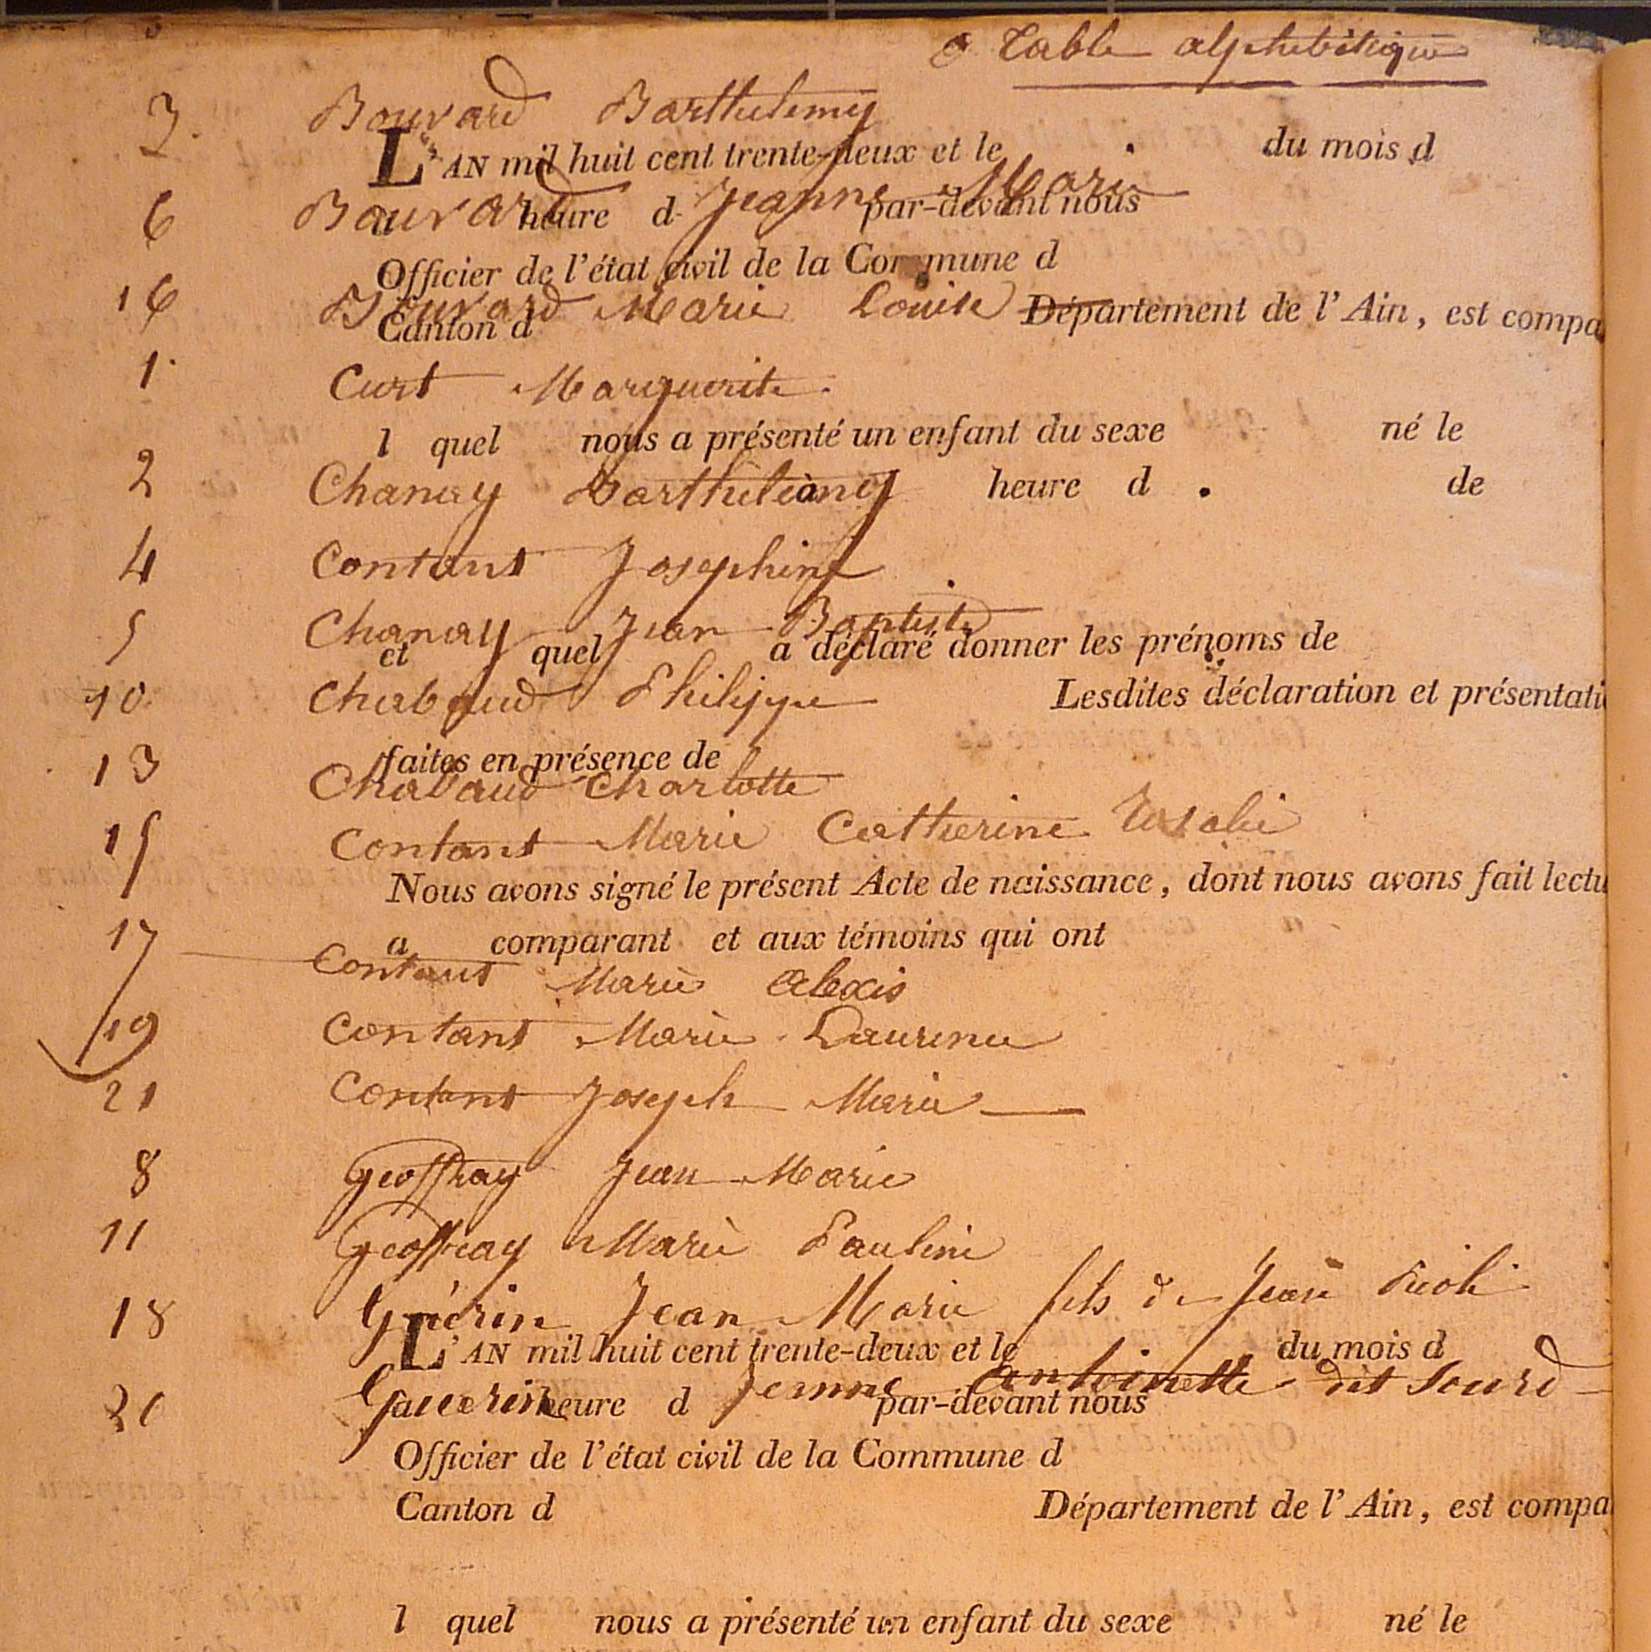 Table alphebétique
3. Bouvard Barthelemy
L'AN mil huit cent trente-deux et le du mois d
6 Bouvard Jeanne Marie
a heure d par-devant nous
Officier de l'état civil de la Commune d
16 Bouvard Marie Louise
Canton d Département de l'Ain, est compa
1. Curt Marguerite
l quel nous a présenté un enfant du sexe né le
2 Chanay Barthelemy
à heure d de
4 Contant Josephine
5 Chanay Jean Baptiste
et quel a déclaré donner les prénoms de
10 Chabaud Philippe
Lesdites déclaration et présentati
faites en présence de
13 Chabaud Charlotte
15 Contant Marie Catherine
Nous avons signé le présent Acte de naissance, dont nous avons fait lectu
a comparant et aux témoins qui ont
17 Contant Marie Alexis
19 Contant Marie Laurence
21 Contant Joseph Marie
8 Geoffray Jean Marie
11 Geoffray Marie Pauline
18 Guérin Jean Marie fils de Jean
L'AN mil huit cent trente-deux et le du mois d
20 Guerin Jeanne Antoinette dit Sourd
a heure d par-devant nous
Officier de l'état civil de la Commune d
Canton d Département de l'Ain, est compa
l quel nous a présenté un enfant du sexe né le